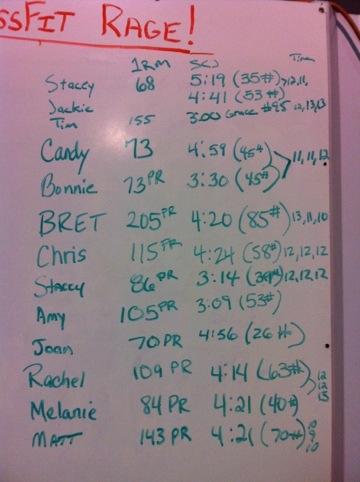 ossFit Rage!
1RM SCJ Times
Stacey 68 5:19 (35#) 12,11,
Jackie 4:41 (53#)
Tim 155 3:00 Grace #95 12,13,13
Candy 73 4:59 (45#) 11,11,12
Bonnie 73 PR 3:30 (45#)
BRET 205 PR 4:20 (85#) 13,11,10
Chris 115 PR 4:24 (58#) 12,12,12
Stacey 86 PR 3:14 12,12,12
Amy 105 PR 3:09 (53#)
Joan 70 PR 4:56 (26#)
Rachel 109 PR 4:14 (63#) 12
Melanie 84 PR 4:21 (40#) 12 13
MATT 143 PR 4:21 (70#) 10 9 10